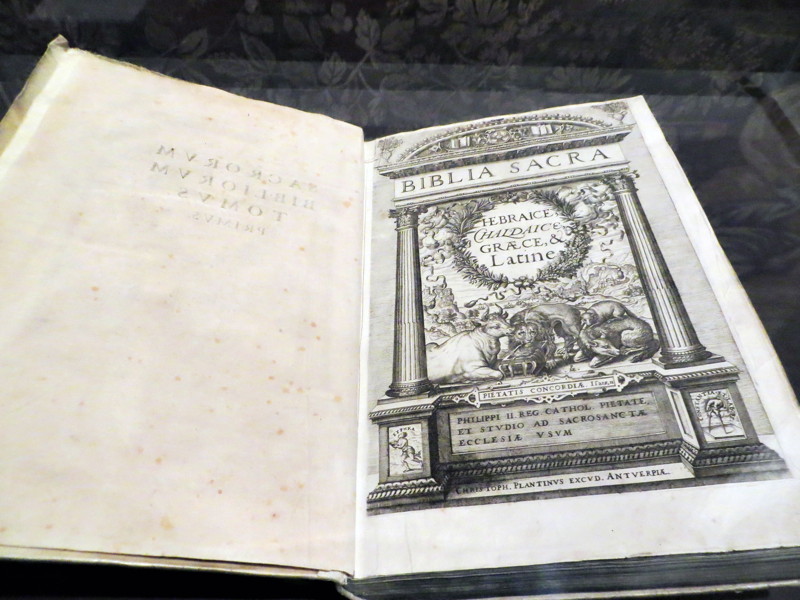 SACRORVM
BIBLIORVM
TOMVS
PRIMVS
BIBLIA SACRA
HEBRAICE,
CHALDAICE,
GRÆCE, &
Latine
PIETATIS CONCORDIÆ
PHILIPPI II REG. CATHOL. PIETATE,
ET STVDIO AD SACROSANCTÆ
ECCLESIÆ VSVM
CHRISTOPH. PLANTINVS EXCVD. ANTVERPIÆ.